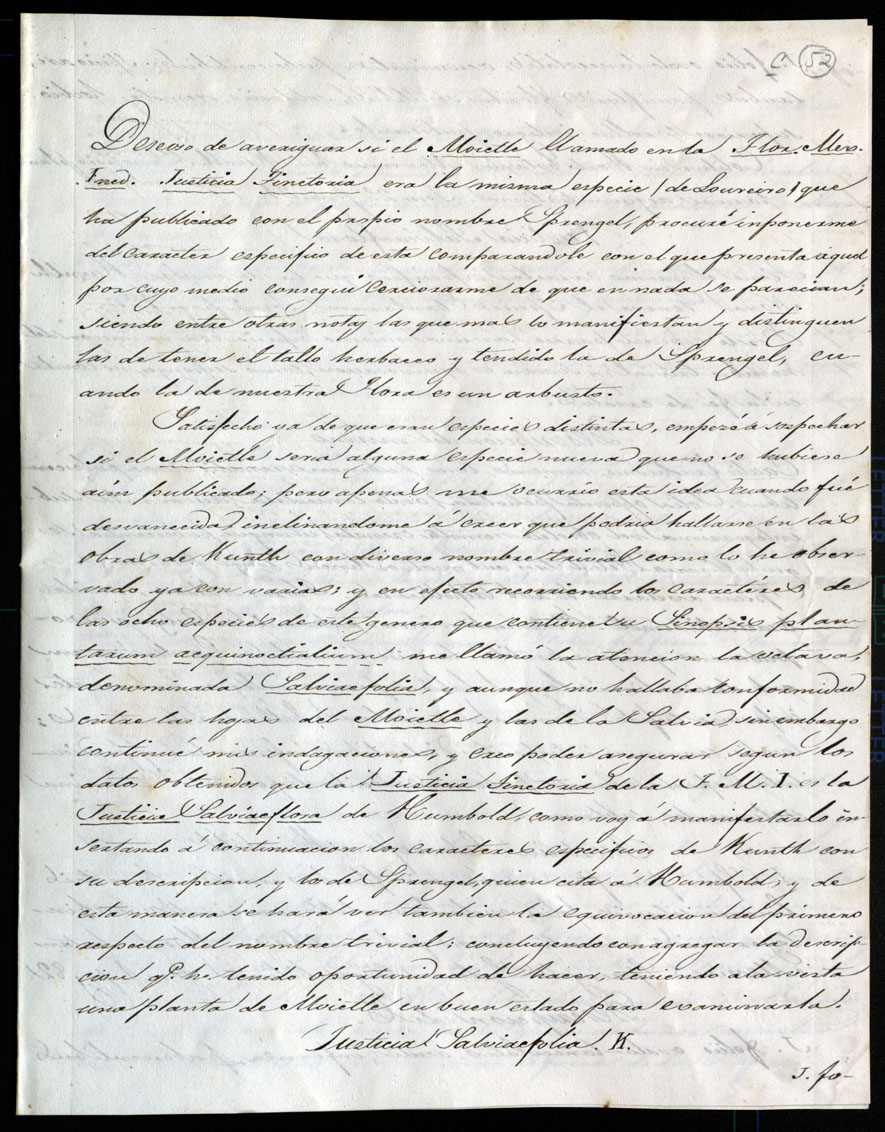 C. 52
Deseoso de averiguar si el Moictle llamado en la Flor. Mex.
Ined. Justicia Tinctoria era la misma especie (de Loureiro) que
ha publicado con el propio nombre Sprengel, procuré inponerme
del caracter especifico de esta comparandole con el que presenta aquel
por cuyo medio conseguí cerciorarme de que en nada se parecian;
siendo entre otras notas las que mas lo manifiestan y distinguen
las de tener el tallo herbaceo y tendido la de Sprengel, cu-
ando la de nuestra Flora es un arbusto.
Satisfecho ya de que eran especies distintas, empezé á sospechar
si el Moictle seria alguna especie nueva que no se hubiese
aún publicado; pero apenas me ocurrio esta idea cuando fué
desvanecida inclinandome á creer que podria hallarse en las
obras de Kunth con diverso nombre trivial como lo he obser-
vado ya con varias; y en efecto recorriendo los caractéres de
las ocho especies de este genero que contiene su Sinopsis plan-
tarum aequinoctialium me llamó la atencion la octava,
denominada Salviaefolia, y aunque no hallaba conformidad
entre las hojas del Moictle y las de la Salvia, sin embargo
continué mis indagaciones, y creo poder asegurar segun los
datos obtenidos que la Justicia Tinctoria de la F. M. I. es la
Justicia Salviaeflora de Humbold, como voy á manifestarlo in-
sertando á continuacion los caracteres especificos de Kunth con
su descripcion, y los de Sprengel, quien cita á Humbold; y de
esta manera se hará ver tambien la equivocacion del primero
respecto del nombre trivial: concluyendo con agregar la descrip-
cion qe. he tenido oportunidad de hacer, teniendo a la vista
una planta de Moictle en buen estado para examinarla.
Justicia Salviaefolia. K.
J. fo-